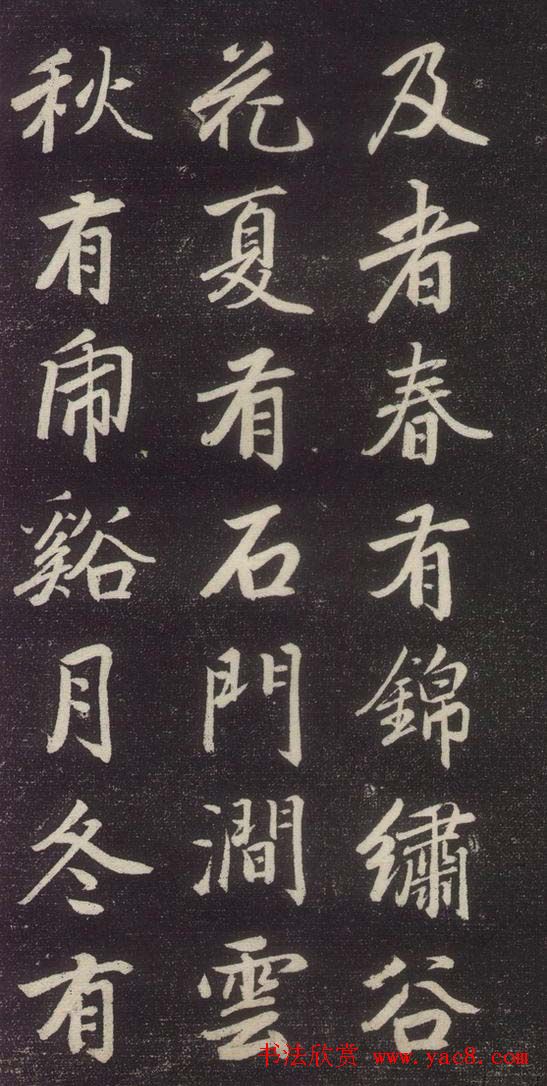 及者春有錦繡谷
花夏有石門澗雲
秋有乕谿月冬有
书法欣赏 www.yac8.com